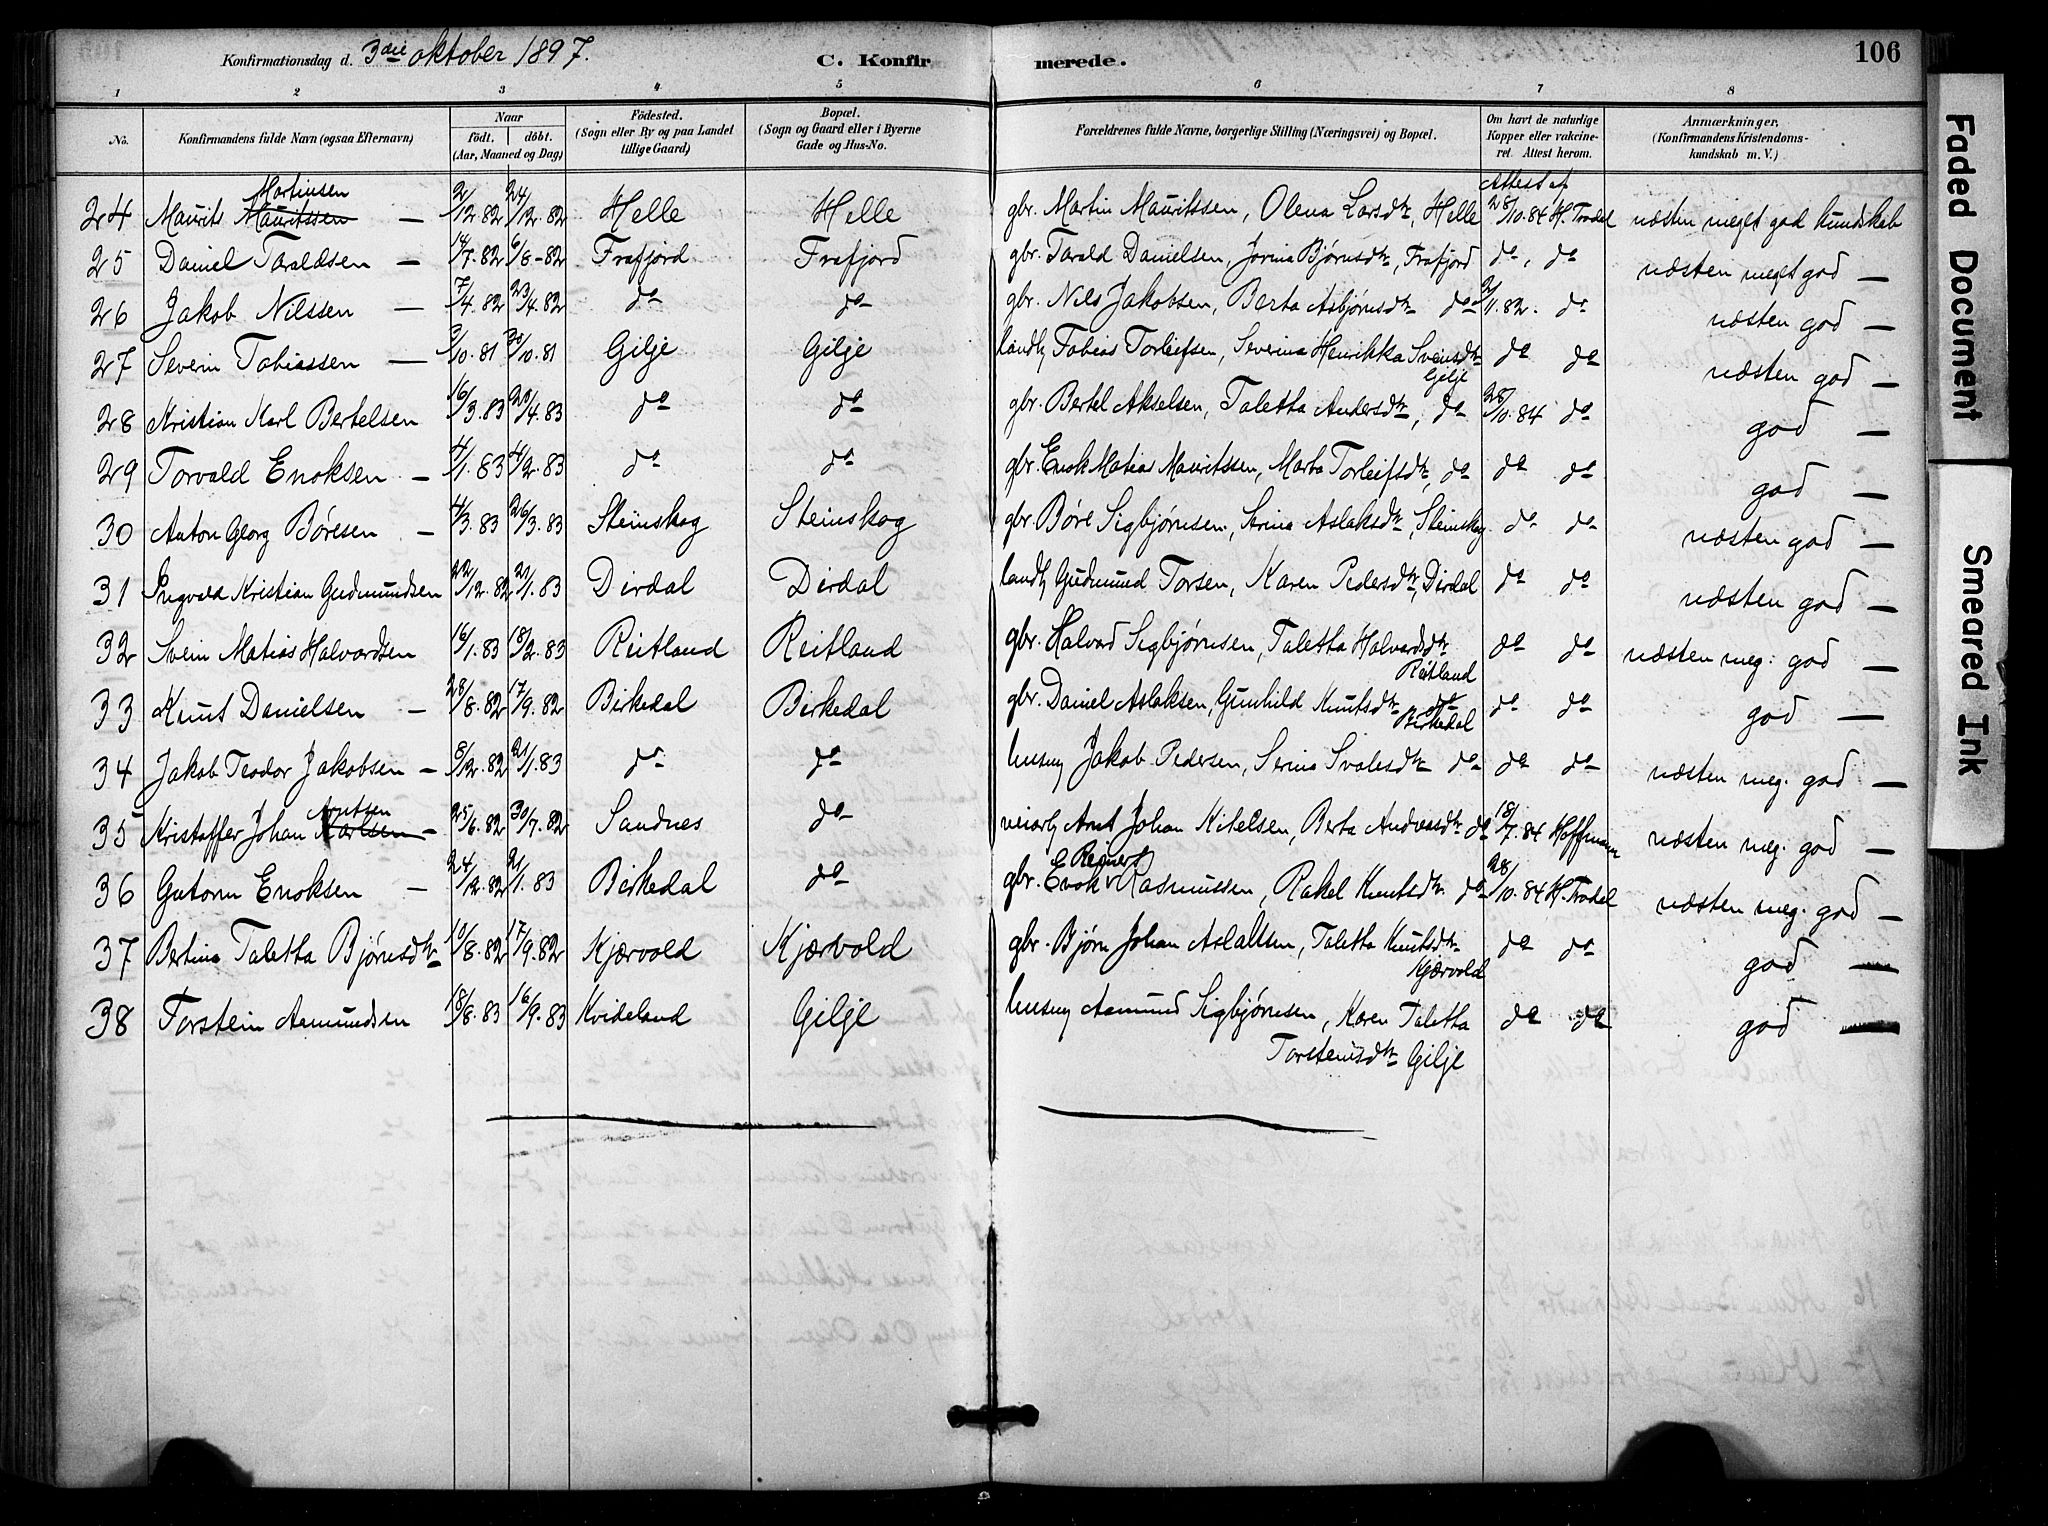 Konfirmationsdag d. 3die oktober 1897.
C. Konfir merede.
106
1 2 3 4 5 6 7 8
No.
Konfirmandens fulde Navn (ogsaa Efternavn)
Naar
födt. döbt.
(Aar, Maaned og Dag)
Födested.
(Sogn eller By og paa Landet
tillige Gaard)
Bopæl.
(Sogn og Gaard eller i Byerne
Gade og Hus-No.
Forældrenes fulde Navne, borgerlige Stilling (Næringsvei) og Bopæl.
Om havt de naturlige
Kopper eller vakcine-
ret. Attest herom.
Anmærkninger,
(Konfirmandens Kristendoms-
kundskab m. V.)
Martinsen
Attest af
24 Maurits Mauritssen — 2/12.82 24/12.82 Helle Helle gbr. Martin Mauritssen, Olena Larsdtr, Helle 28/10.84 H. Tradal næsten meget god kundskab
25 Daniel Taraldsen — 14/7.82 6/8-82 Frafjord Frafjord gbr. Tarald Danielsen, Jorina Bjørnsdtr, Frafjord do, do næsten meget god —
26 Jakob Nilssen — 7/4.82 23/4.82 do do gbr. Nils Jakobsen, Berta Asbjørnsdtr do 2/11.82. do næsten god —
27 Severin Tobiassen — 3/10.81 30/10.81 Gilje Gilje landh Tobias Torleifsen, Severina Henrikka Sveinsdtr do do næsten god —
Gilje
28 Kristian Karl Bertelsen 16/3.83 23/4.83 do do gbr. Bertel Akselsen, Taletta Andersdtr, do 28/10.84 do god —
29 Torvald Enoksen — 4/1.83 4/2.83 do do gbr. Enok Matias Mauritssen, Marta Torleifsdtr, do do do god —
30 Anton Georg Børesen — 4/3.83 26/3.83 Steinskog Steinskog gbr. Børe Sigbjørnsen, Serina Aslaksdtr, Steinskog. do do næsten god —
31 Ingvald Kristian Gudmundsen 22/12.82 21/1.83 Dirdal Dirdal landh Gudmund Torsen, Karen Pedersdtr, Dirdal do do næsten god —
32 Svein Matias Halvardsen 16/1.83 18/2.83 Reitland Reitland gbr. Halvard Sigbjørnsen, Taletta Halvardsdtr do do næsten meg. god —
Reitland
33 Knut Danielsen — 28/8.82 17/9.82 Birkedal Birkedal gbr. Daniel Aslaksen, Gunhild Knutsdtr do do do god —
Birkedal
34 Jakob Teodor Jakobsen — 8/12.82 21/1.83 do do husmy Jakob Pedersen, Serina Svalesdtr do do do næsten meg. god —
Arntsen
35 Kristoffer Johan Karlsen — 25/6.82 30/7.82 Sandnes do veiarb Arnt Johan Kitelsen, Berta Andreasdtr do 18/7.84 Hoffmann næsten meg. god —
Reinert
36 Gutorm Enoksen — 24/12.82 21/1.83 Birkedal do gbr. Enok Rasmussen, Rakel Knutsdtr. do 28/10.84 H. Tradal næsten meg. god —
37 Bertina Taletta Bjørnsdtr 10/8.82 17/9.82 Kjærvold Kjærvold gbr. Bjørn Johan Aslaksen, Taletta Knutsdtr do do god —
Kjærvold
38 Torstein Aamundsen 18/8.83 16/9.83 Kvideland Gilje husmy Aamund Sigbjørnsen, Karen Taletta do do god —
Torsteinsdtr Gilje
Faded Document
Smeared Ink